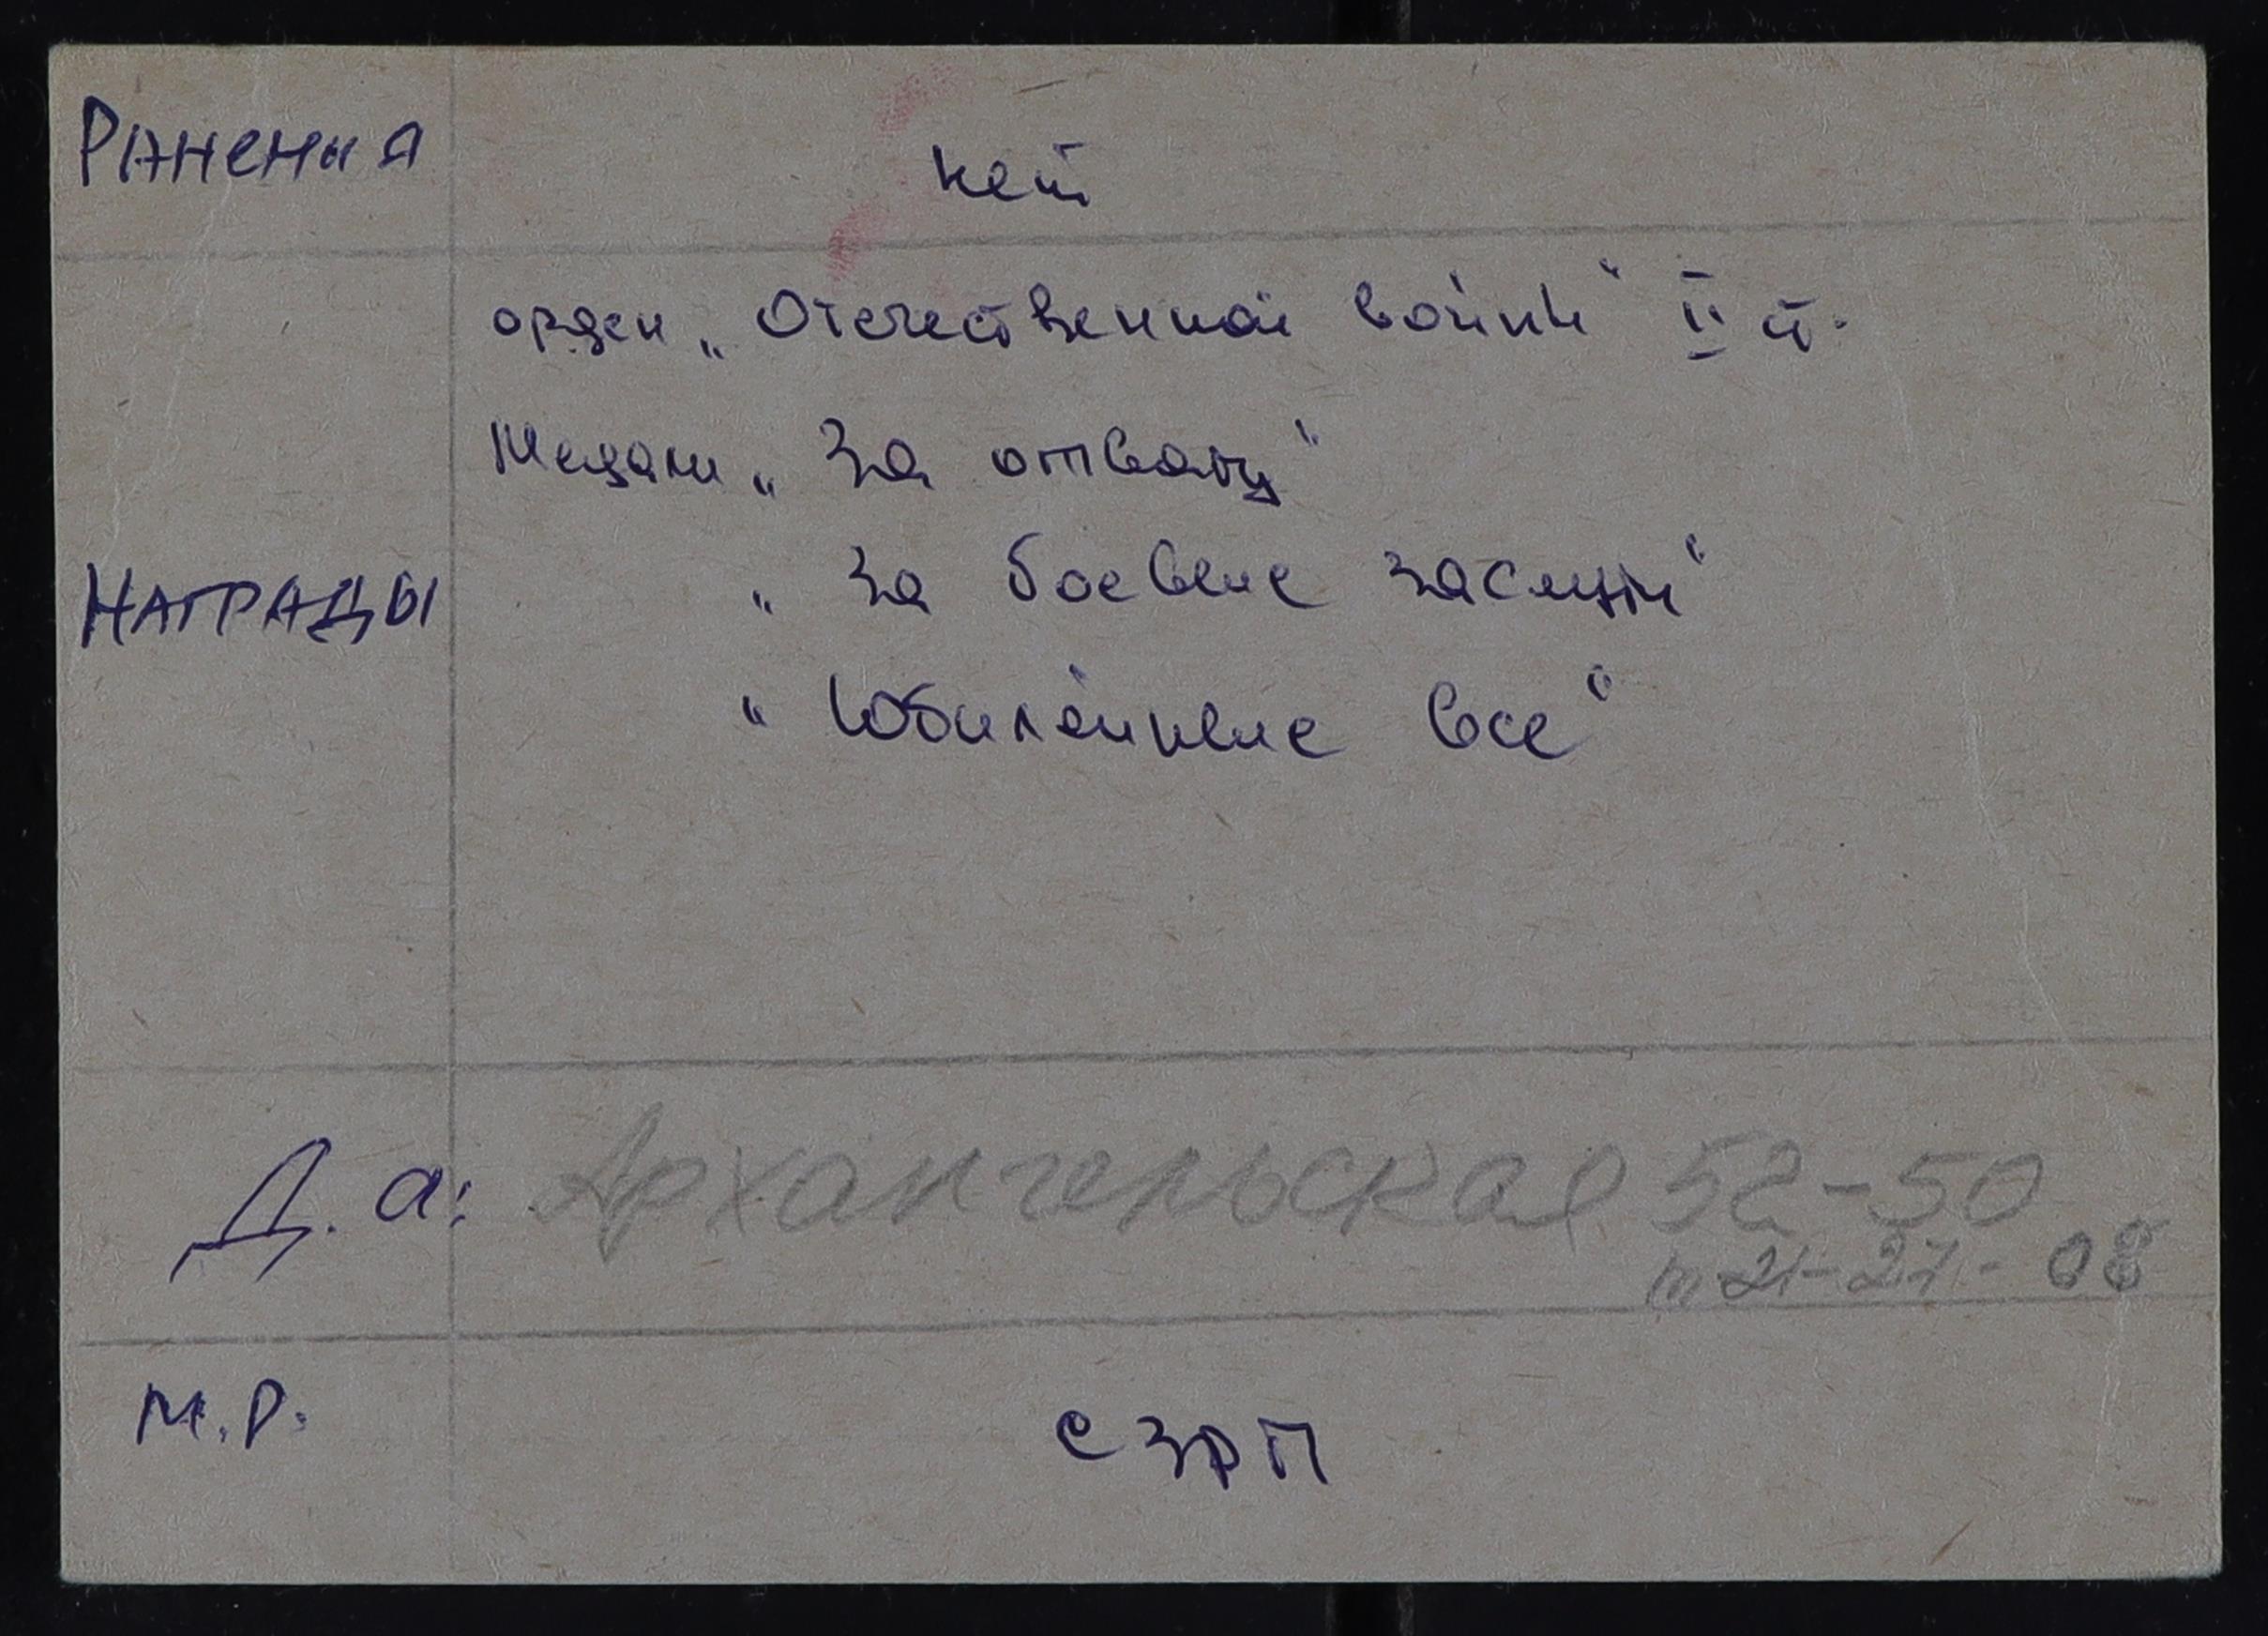 Ранения нет
орден „Отечественной войны“ II ст.
медали „За отвагу“
Награды „За боевые заслуги“
„Юбилейные все“
Д. а: Архангельская 52-50
т 21-27-08
М.Р. СЗРП